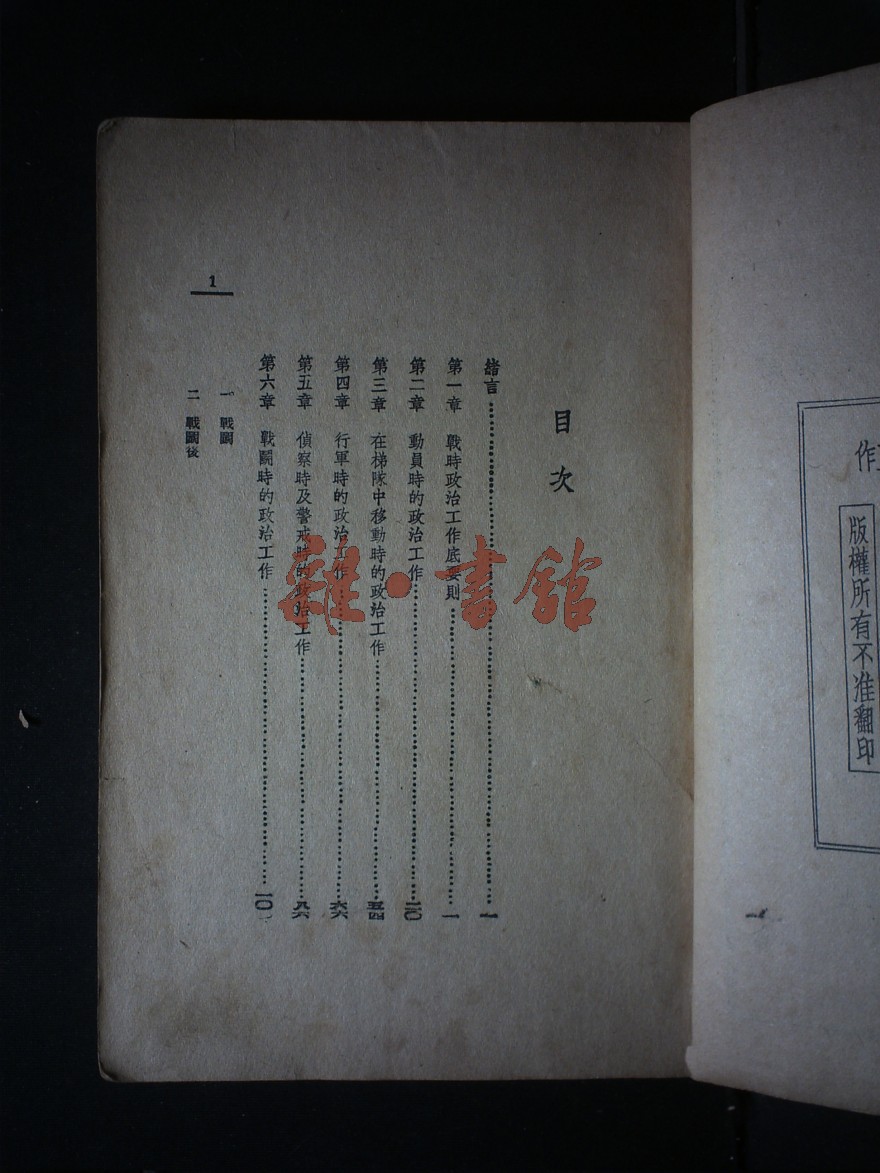 作
版權所有不准翻印
目次
緒言…………一
第一章 戰時政治工作底要則…………一
第二章 動員時的政治工作…………二〇
第三章 在梯隊中移動時的政治工作…………五四
第四章 行軍時的政治工作…………六六
第五章 偵察時及警戒時的政治工作…………八六
第六章 戰鬭時的政治工作…………一〇一
一 戰鬭
二 戰鬭後
1
雜·書館